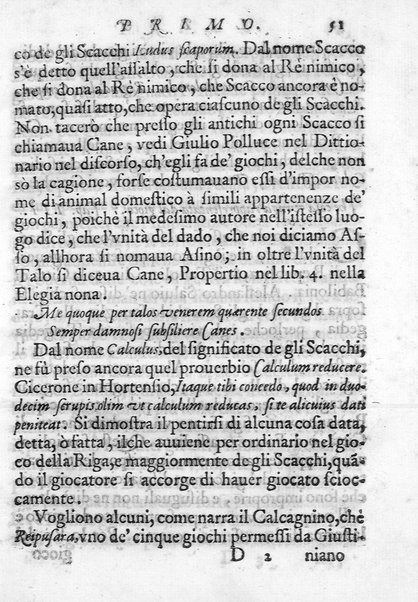 PRIMO. 51
co de gli Scacchi Ludus scaporum. Dal nome Scacco
s'è detto quell'assalto, che si dona al Rè nimico,
che si dona al Rè nimico, che Scacco ancora è no-
mato, quasi atto, che opera ciascuno de gli Scacchi.
Non tacerò che presso gli antichi ogni Scacco si
chiamaua Cane, vedi Giulio Polluce nel Dittio-
nario nel discorso, ch'egli fa de' giochi, delche non
sò la cagione, forse costumauano essi d'impor no-
me di animal domestico à simili appartenenze de'
giochi, poiche il medesimo autore nell'istesso luo-
go dice, che l'vnità del dado, che noi diciamo As-
so, allhora si nomaua Asino; in oltre l'vnità del
Talo si diceua Cane, Propertio nel lib. 4. nella
Elegia nona.
Me quoque per talos venerem quærente secundos
Semper damnosi subsiliere Canes.
Dal nome Calculus, del significato de gli Scacchi,
ne fù preso ancora quel prouerbio Calculum reducere.
Cicerone in Hortensio, Itaque tibi concedo, quod in duo-
decim scrupis olim vt calculum reducas, si te alicuius dati
peniteat. Si dimostra il pentirsi di alcuna cosa data,
detta, ò fatta, ilche auuiene per ordinario nel gio-
co della Riga, e maggiormente de gli Scacchi, quã-
do il giocatore si accorge di hauer giocato scioc-
camente.
Vogliono alcuni, come narra il Calcagnino, che
Reipusara, vno de' cinque giochi permessi da Giusti-
D 2 niano